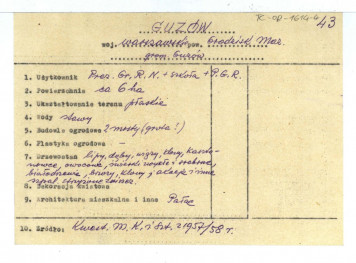 K-OP-1614-G 43
GUZÓW
woj. warszawskie pow. Grodzisk Maz.
grom. Guzów
1. Użytkownik Prez. Gr. R. N. + szkoła + P.G.R.
2. Powierzchnia ca 6 ha
3. Ukształtowanie terenu płaskie
4. Wody stawy
5. Budowle ogrodowe 2 mosty (grota!)
6. Plastyka ogrodowa -
7. Drzewostan lipy, dęby, wiązy, klony, kaszta-
nowce, owocowe,
białodrzew, klony, akacje i inne
8. Dekoracja kwiatowa
9. Architektura mieszkalna i inna Pałac
10. Źródło: Kwest. M. K. i Szt. z 1957/58 r.